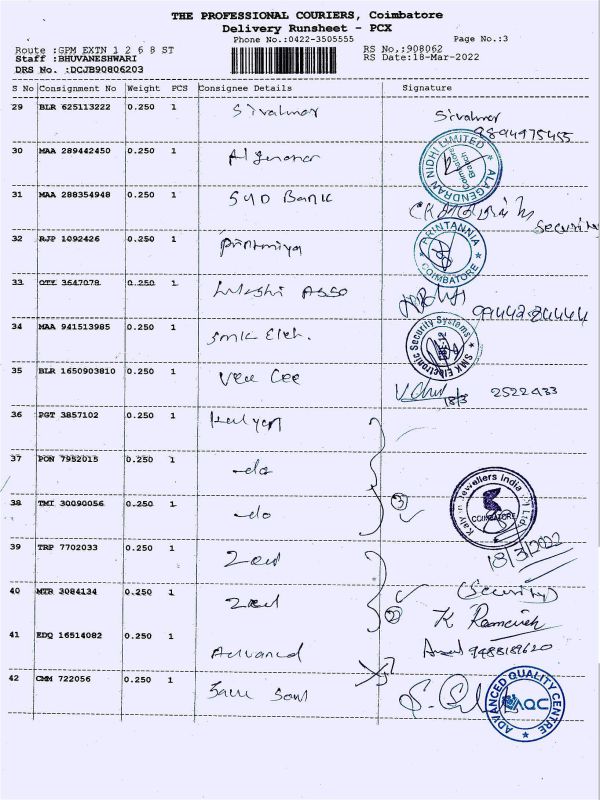 THE PROFESSIONAL COURIERS, Coimbatore
Delivery Runsheet - PCX
Phone No.:0422-3505555 Page No.:3
Route :GPM EXTN 1 2 6 8 ST RS No.;908062
Staff :BHUVANESHWARI RS Date:18-Mar-2022
DRS No. :DCJB90806203
S No Consignment No Weight PCS Consignee Details Signature
29 BLR 625113222 0.250 1
9894975455
30 MAA 289442450 0.250 1
ALAGENDRAN NIDHI LIMITED Coimbatore Branch
31 MAA 288354948 0.250 1 SYD Bank
Security
32 RJP 1092426 0.250 1
PRINTANNIA COIMBATORE
33 OTY 3647078 0.250 1 Asso
34 MAA 941513985 0.250 1 SMK Elect.
SMK Electronic Security Systems
35 BLR 1650903810 0.250 1 Vee Cee
18/3 2522433
36 PGT 3857102 0.250 1 Kalyan
37 PON 7952015 0.250 1 -do
38 TMI 30090056 0.250 1 -do 3
Kalyan Jewellers India Ltd COIMBATORE
18/3/2022
39 TRP 7702033 0.250 1
40 MTR 3084134 0.250 1 2
(Security)
41 EDQ 16514082 0.250 1 Advanced
9488189620
42 CMM 722056 0.250 1
ADVANCED QUALITY CENTRE AQC